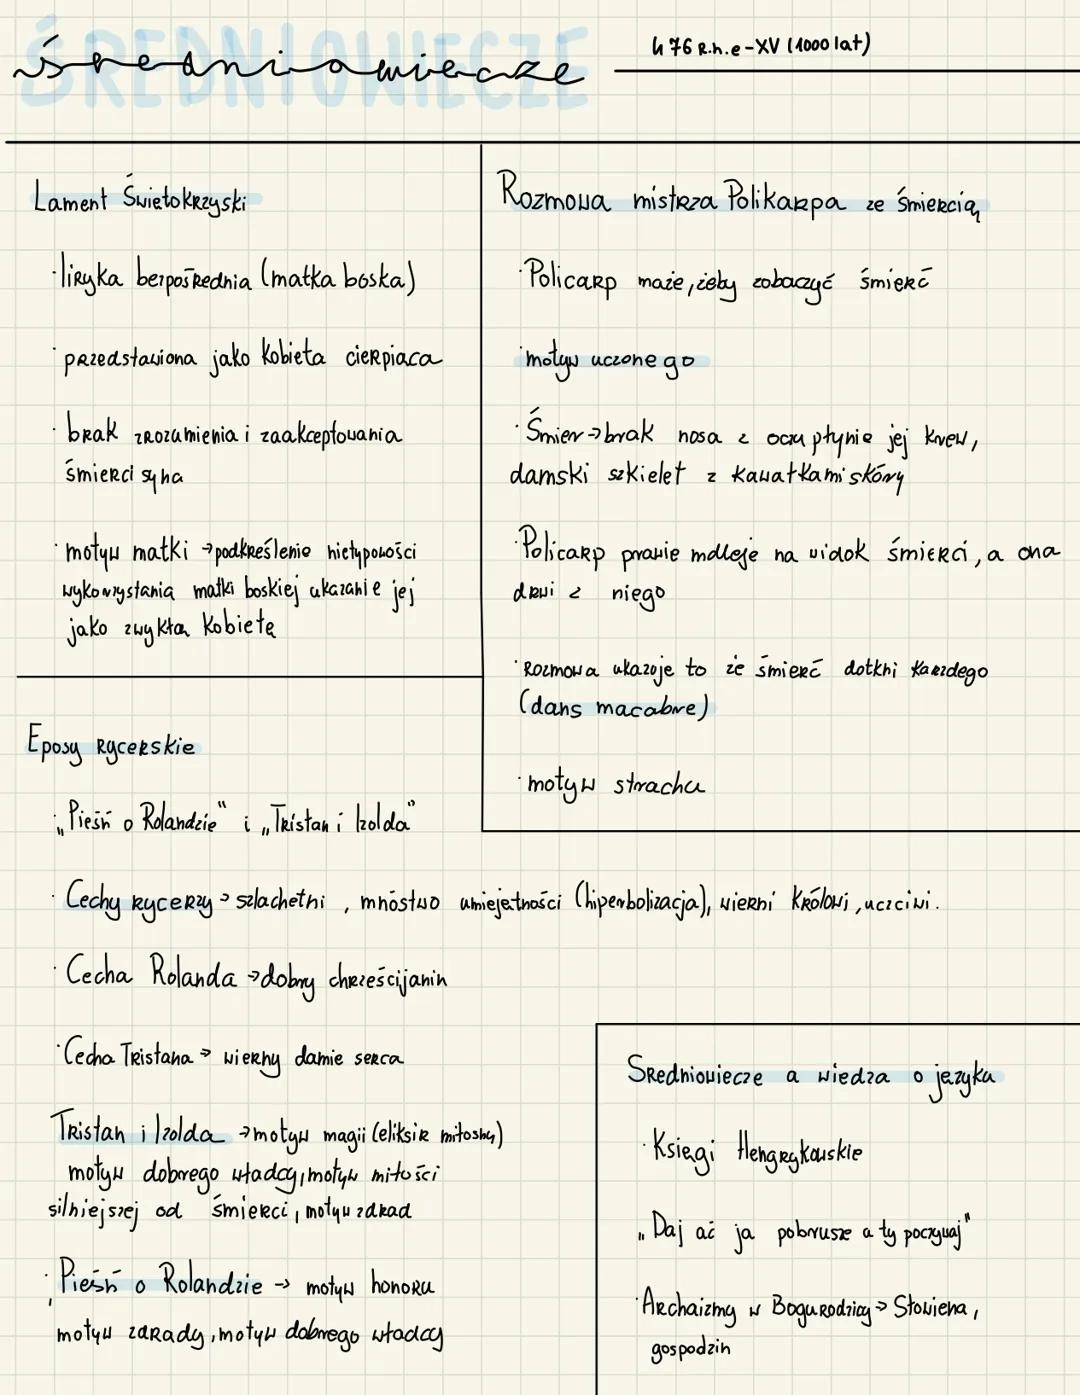 ŚREDNIOWIECZE
średniowiecze
476 R.n.e-XV (1000 lat)
Lament Świętokrzyski
·liryka bezpośrednia (matka boska)
·przedstawiona jako kobieta cierpiąca
·brak zrozumienia i zaakceptowania
śmierci syna
·motyw matki →podkreślenie nietypowości
wykorzystania matki boskiej ukazanie jej
jako zwykłą kobietę
Rozmowa mistrza Polikarpa ze śmiercią
·Policarp maże, żeby zobaczyć śmierć
·motyw uczonego
·Śmier→brak nosa z oczu płynie jej krew,
damski szkielet z kawałkami skóry
·Policarp prawie mdleje na widok śmierci, a ona
drwi z niego
·Rozmowa ukazuje to że śmierć dotkni karzdego
(dans macabre)
·motyw strachu
Eposy rycerskie
·„Pieśń o Rolandzie" i „Tristan i Izolda"
·Cechy rycerzy→szlachetni, mnóstwo umiejętności (hiperbolizacja), wierni królowi, uczciwi.
·Cecha Rolanda →dobry chrześcijanin
·Cecha Tristana → wierny damie serca
Tristan i Izolda →motyw magii (eliksir miłosny)
motyw dobrego władcy, motyw miłości
silniejszej od śmierci, motyw zdrad
·Pieśń o Rolandzie → motyw honoru
motyw zdrady, motyw dobrego władcy
Sredniowiecze a wiedza o języku
·Księgi Hengrykowskie
„Daj ać ja pobrusze a ty poczywaj"
·Archaizmy w Bogurodzicy→Słowiena,
gospodzin